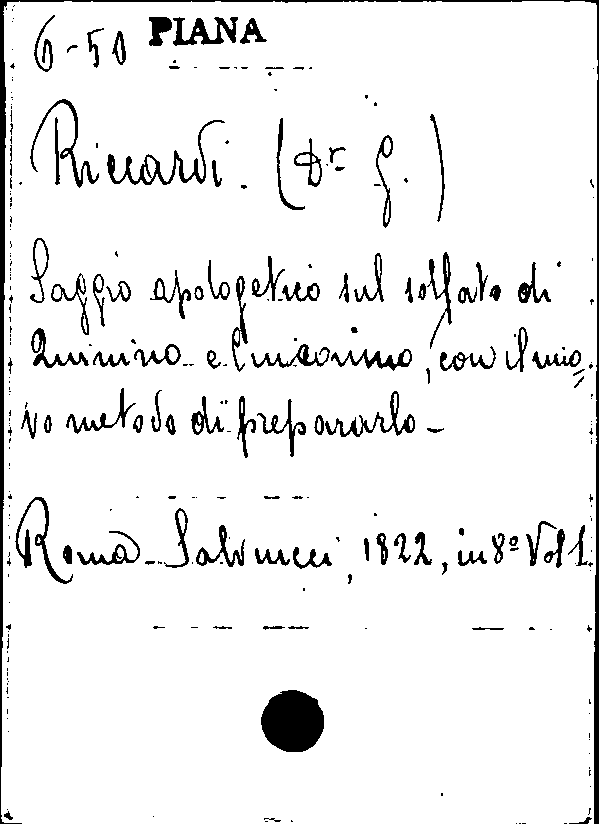 6-50 PIANA
Riccardi. (Dr G.)
Saggio apologetico sul solfato di
Quinino e Cinconino, con il nuo=
vo metodo di prepararlo-
Roma Salvucci, 1822, in 8º Vol 1